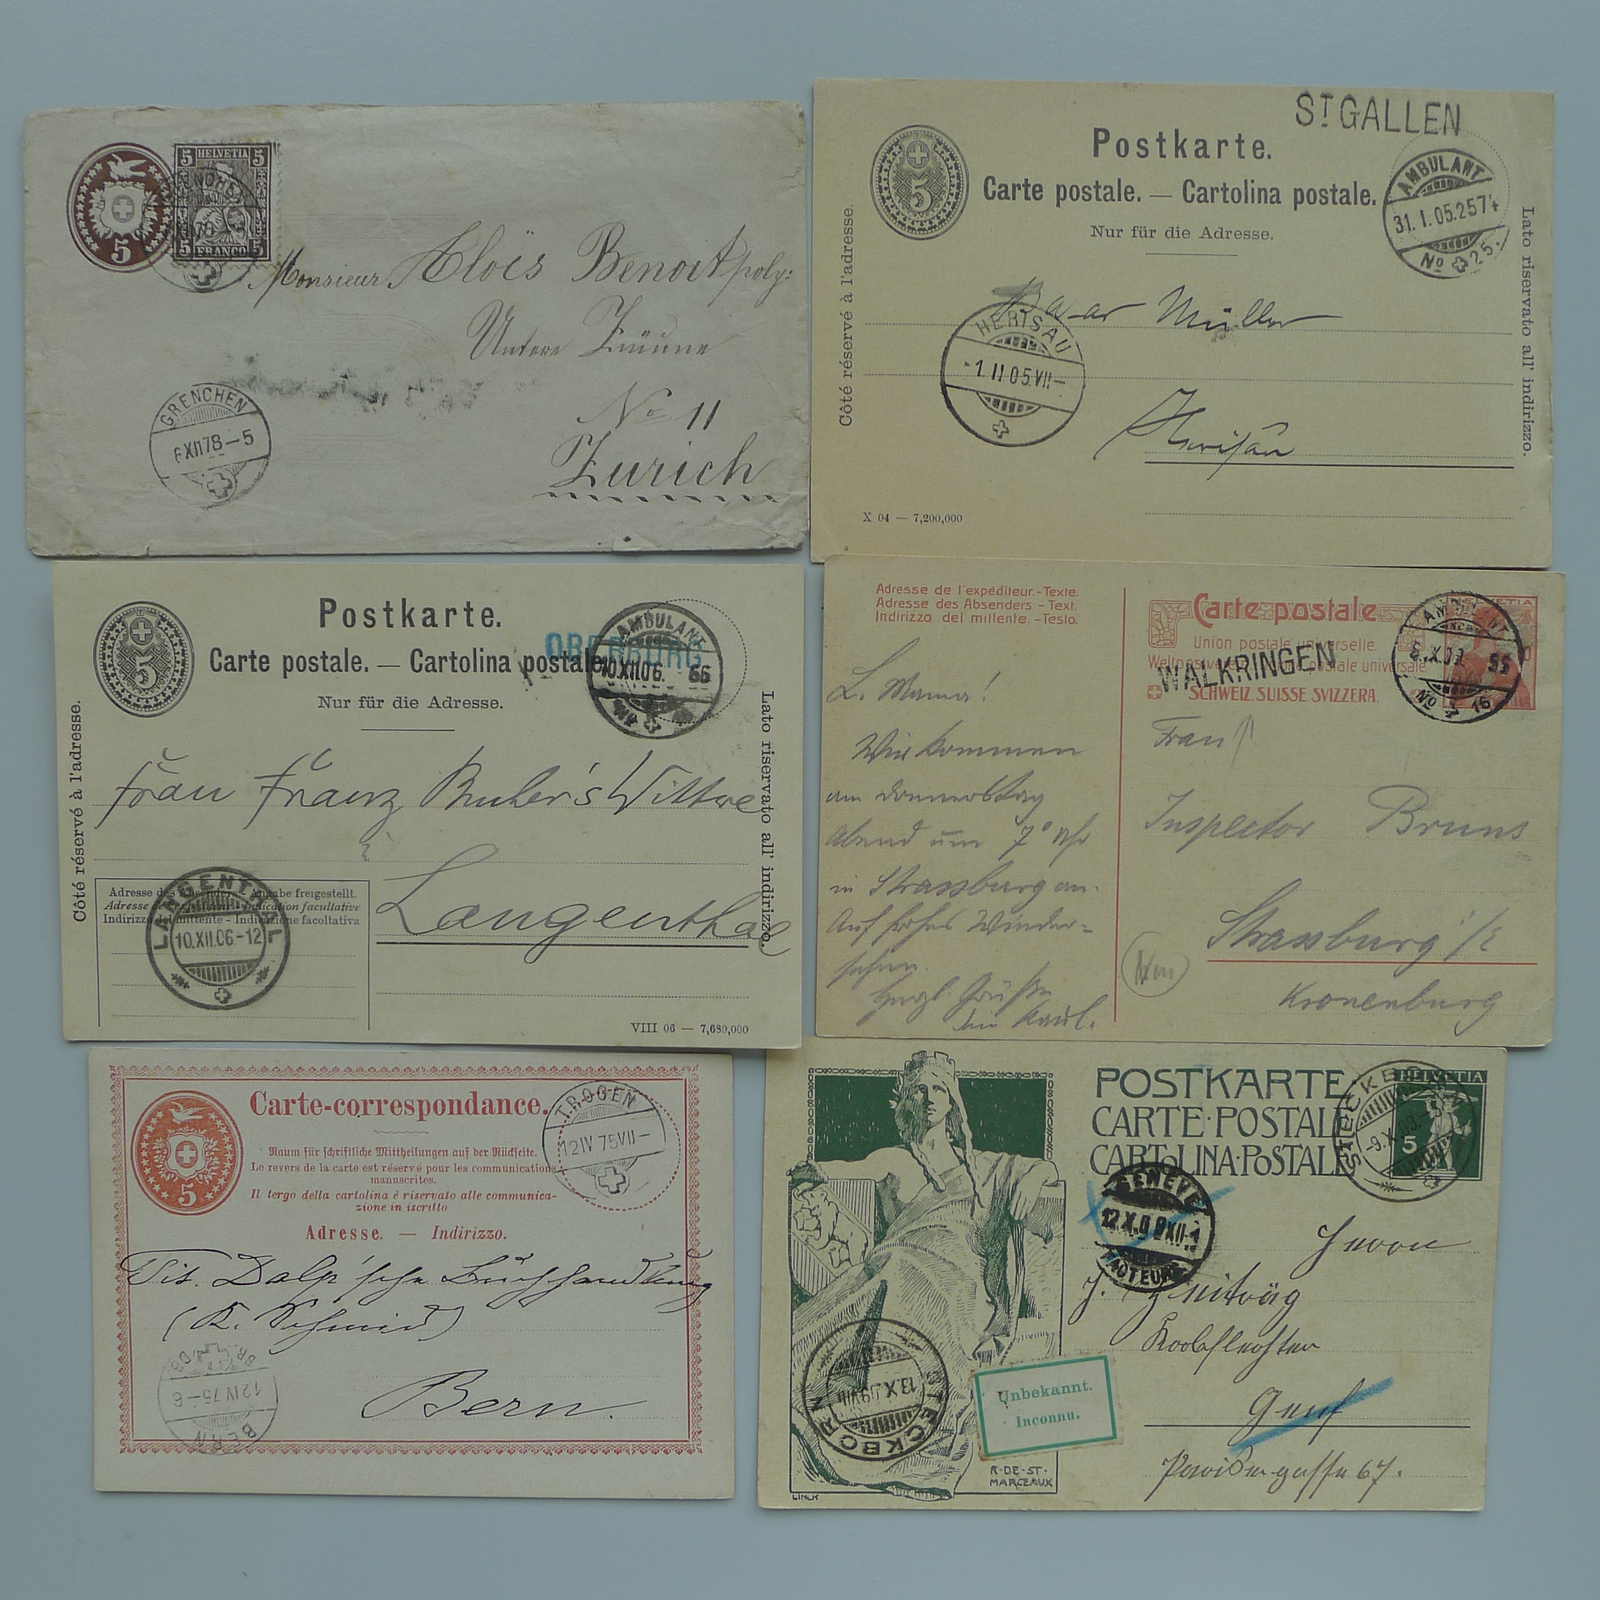 5
5 HELVETIA 5
5 FRANCO 5
Monsieur Aloïs Benoit poly:
Untere Zäune
No 11
Zurich
GRENCHEN
6 XII 78 – 5
ST GALLEN
5
Postkarte.
Carte postale. — Cartolina postale.
Nur für die Adresse.
AMBULANT
31. I. 05. 257
No 25.
Côté réservé à l'adresse.
Lato riservato all' indirizzo.
Müller
HERISAU
-1. II 05. VII-
Herisau
X 04 — 7,200,000
5
Postkarte.
Carte postale. — Cartolina postale.
Nur für die Adresse.
OBERBURG
AMBULANT
10.XII.06. 56
Côté réservé à l'adresse.
Lato riservato all' indirizzo.
Frau Franz Witwe
Langenthal
Adresse des Absenders - Angabe freigestellt.
Adresse - Indication facultative
Indirizzo del mittente - Indicazione facoltativa
LANGENTHAL
10.XII.06-12
VIII 06 — 7,680,000
Adresse de l'expéditeur. - Texte.
Adresse des Absenders - Text.
Indirizzo del mittente. - Testo.
Carte postale
Union postale universelle.
WALKRINGEN
SCHWEIZ. SUISSE. SVIZZERA.
AMBULANT
X.09. 55
No 16
L. Mama!
Wir kommen
am Donnerstag
Abend um 7° Uhr
in Strassburg an.
Auf frohes Wieder=
sehen.
Herzl. Grüsse
Frau
Inspector Bruns
Strassburg i/E
Kronenburg
5
Carte-correspondance.
Raum für schriftliche Mittheilungen auf der Rückseite.
Le revers de la carte est réservé pour les communications
manuscrites.
Il tergo della cartolina è riservato alle communica-
zione in iscritto
Adresse. — Indirizzo.
TROGEN
12 IV 75 VII-
Tit. Dalp'sche Buchhandlung
(K. Schmid)
Bern.
BERN
12 IV 75-6
POSTKARTE
CARTE·POSTALE
CARTOLINA·POSTALE
HELVETIA
5
STECKBORN
-9.X.09.
GENEVE
12.X.09 XII-1
FACTEURS
Herrn
Korbflechter
Genf
67.
STECKBORN
13.X.09 VIII
Unbekannt.
Inconnu.
R·DE·ST·
MARCEAUX